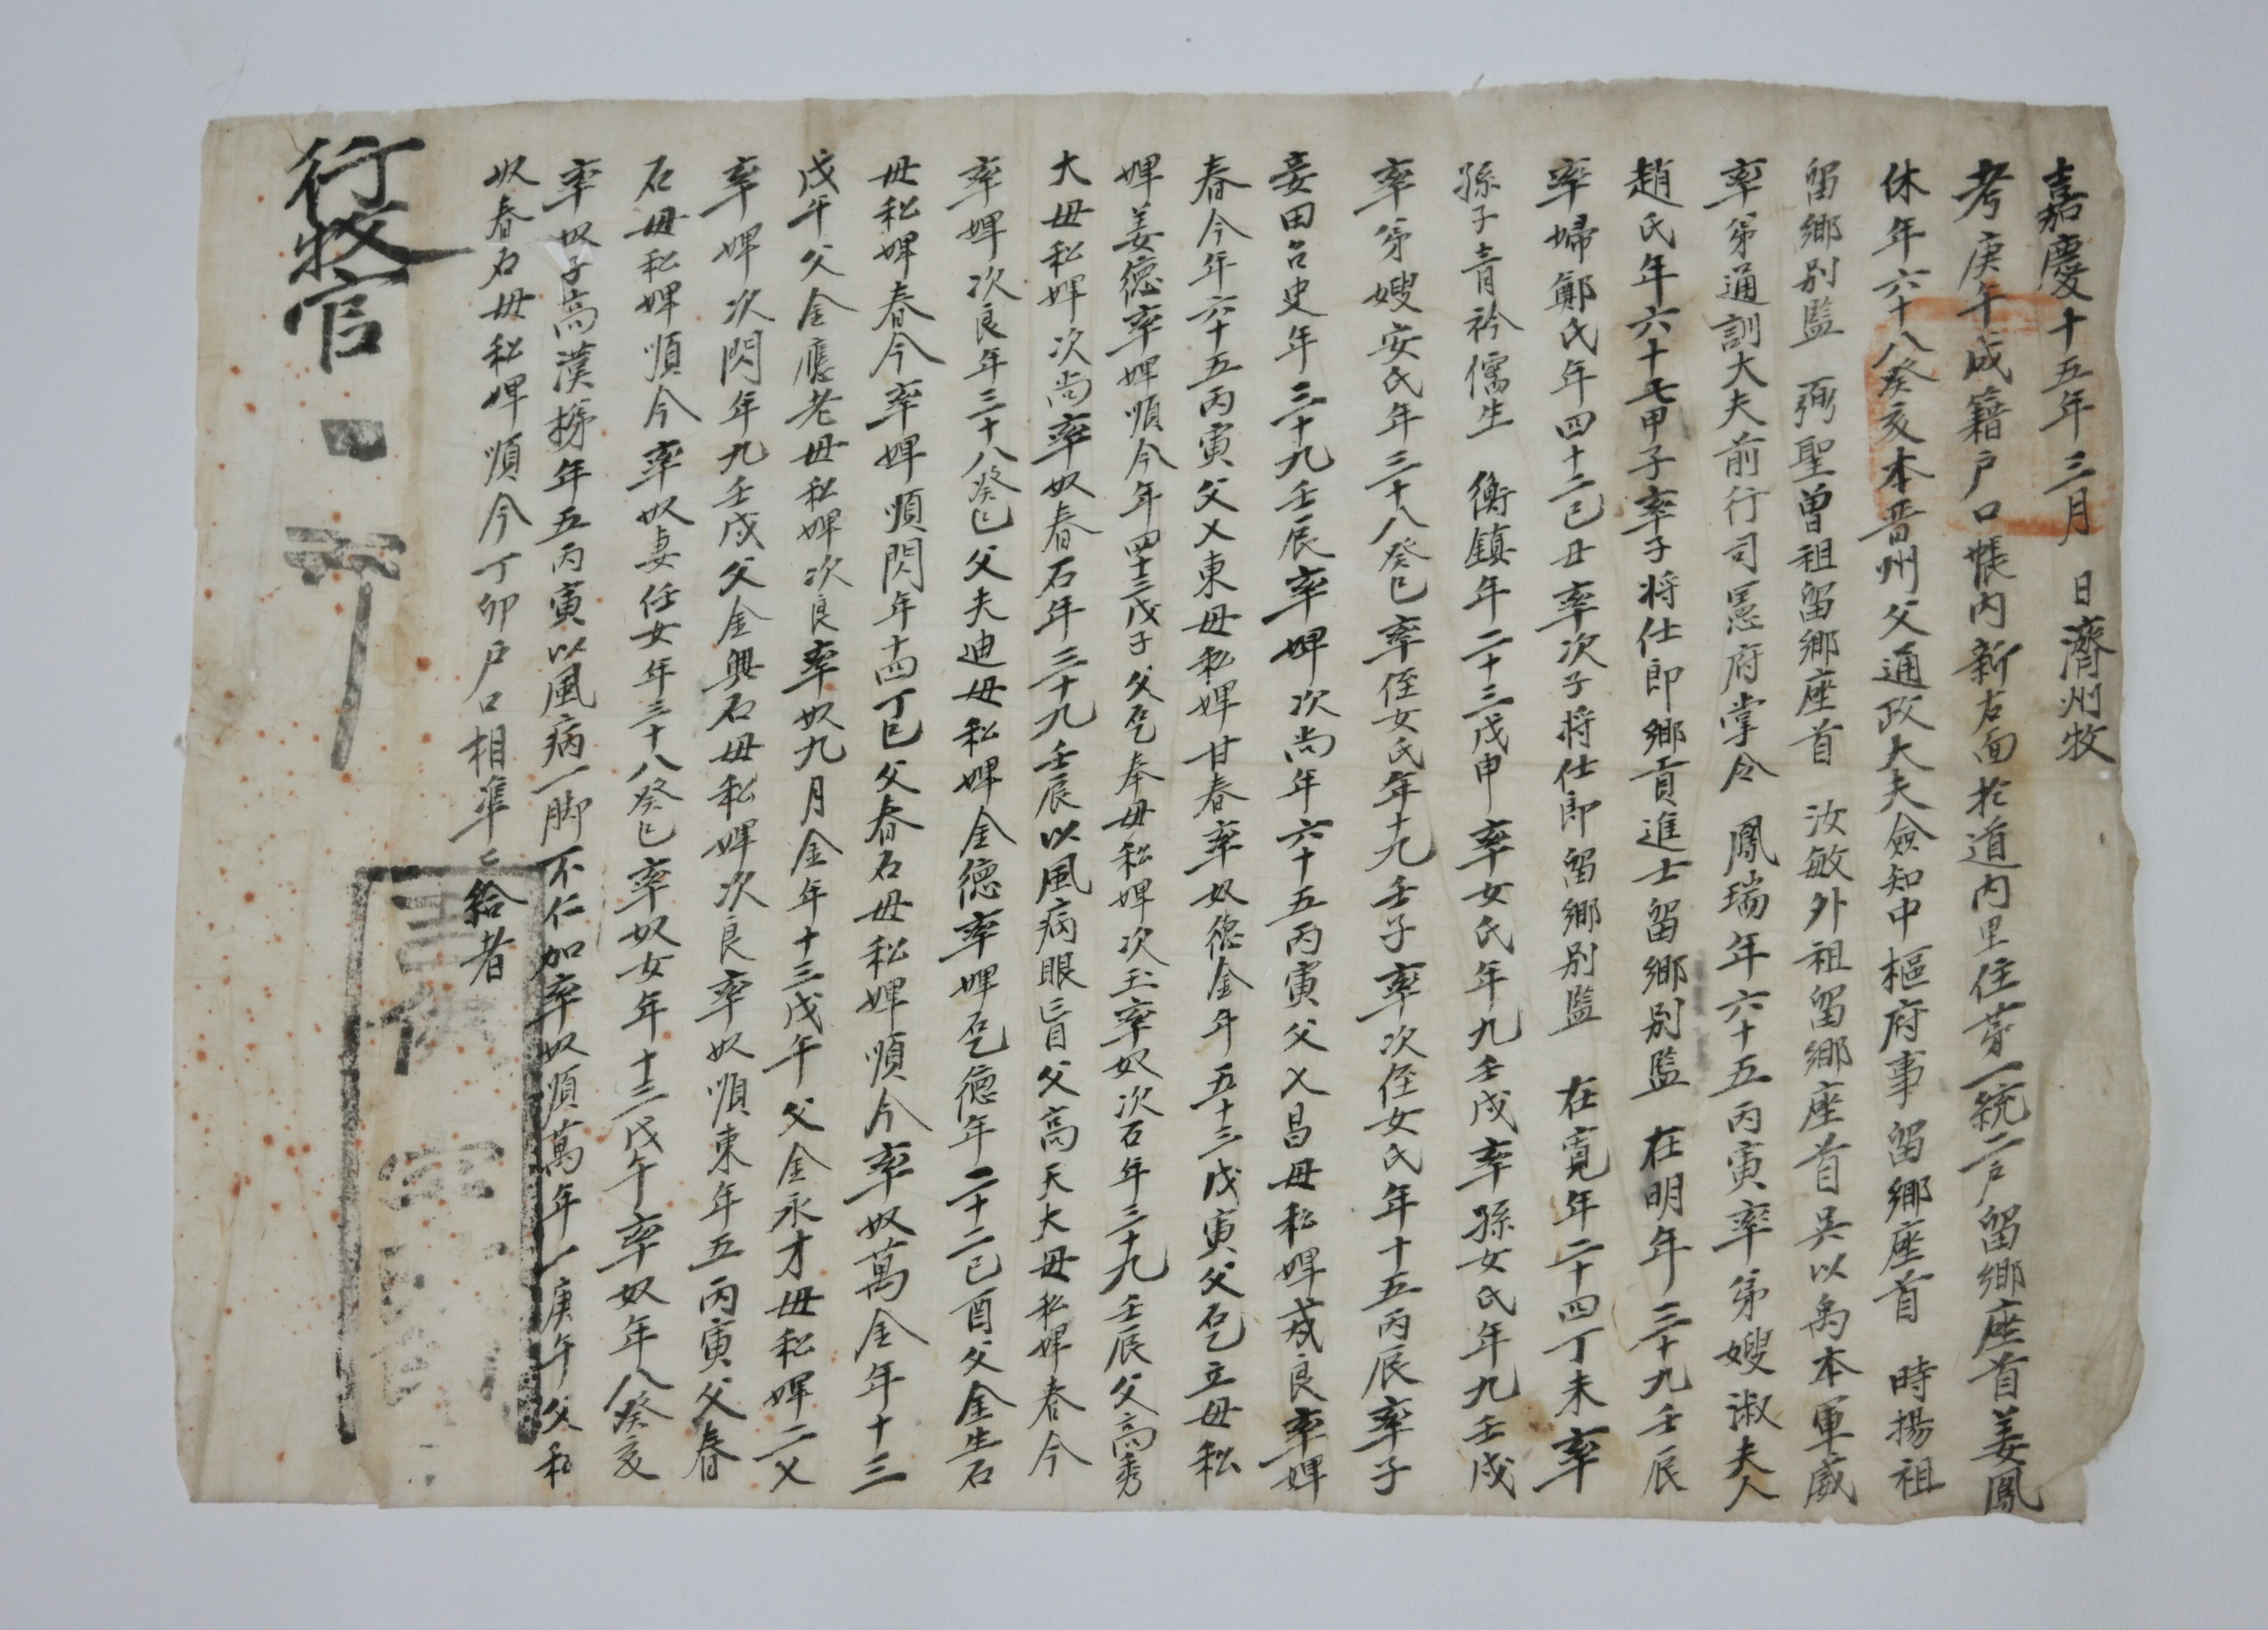 嘉慶十五年三月 日濟州牧
考庚午成籍戶口帳內新右面於道內里住第一統二戶留鄉座首姜鳳
休年六十八癸亥本晋州父通政大夫僉知中樞府事留鄉座首 時揚祖
留鄉別監 弼聖曾祖留鄉座首 汝敏外祖留鄉座首吳以禹本軍威
率弟通訓大夫前行司憲府掌令 鳳瑞年六十五丙寅率弟嫂淑夫人
趙氏年六十七甲子率子将仕郎鄉貢進士留鄉別監 在明年三十九壬辰
率婦鄭氏年四十二己丑率次子将仕郎留鄉別監 在寬年二十四丁未率
孫子青衿儒生 衡鎮年二十三戊申率女氏年九壬戌率孫女氏年九壬戌
率弟嫂安氏年三十八癸巳率侄女氏年十九壬子率次侄女氏年十五丙辰率子
妾田召史年三十九壬辰率婢次尚年六十五丙寅父乂昌母私婢戎良率婢
春今年六十五丙寅父乂東母私婢甘春率奴德金年五十三戊寅父㐗立母私
婢姜德率婢順今年四十三戊子父㐗奉母私婢次玉率奴次石年三十九壬辰父高秀
大母私婢次尚率奴春石年三十九壬辰以風病眼盲父高天大母私婢春今
率婢次良年三十八癸巳父夫迪母私婢金德率婢㐗德年二十二己酉父金生石
母私婢春今率婢順閃年十四丁巳父春石母私婢順今率奴萬金年十三
戊午父金應老母私婢次良率奴九月金年十三戊午父金永才母私婢二乂
率婢次閃年九壬戌父金興石母私婢次良率奴順東年五丙寅父春
石母私婢順今率奴妻任女年三十八癸巳率奴女年十三戊午率奴年八癸亥
率奴子高漢榜年五丙寅以風病一脚不仁加率奴順萬年一庚午父私
奴春石母私婢順今丁卯戶口相準々給者
行牧官